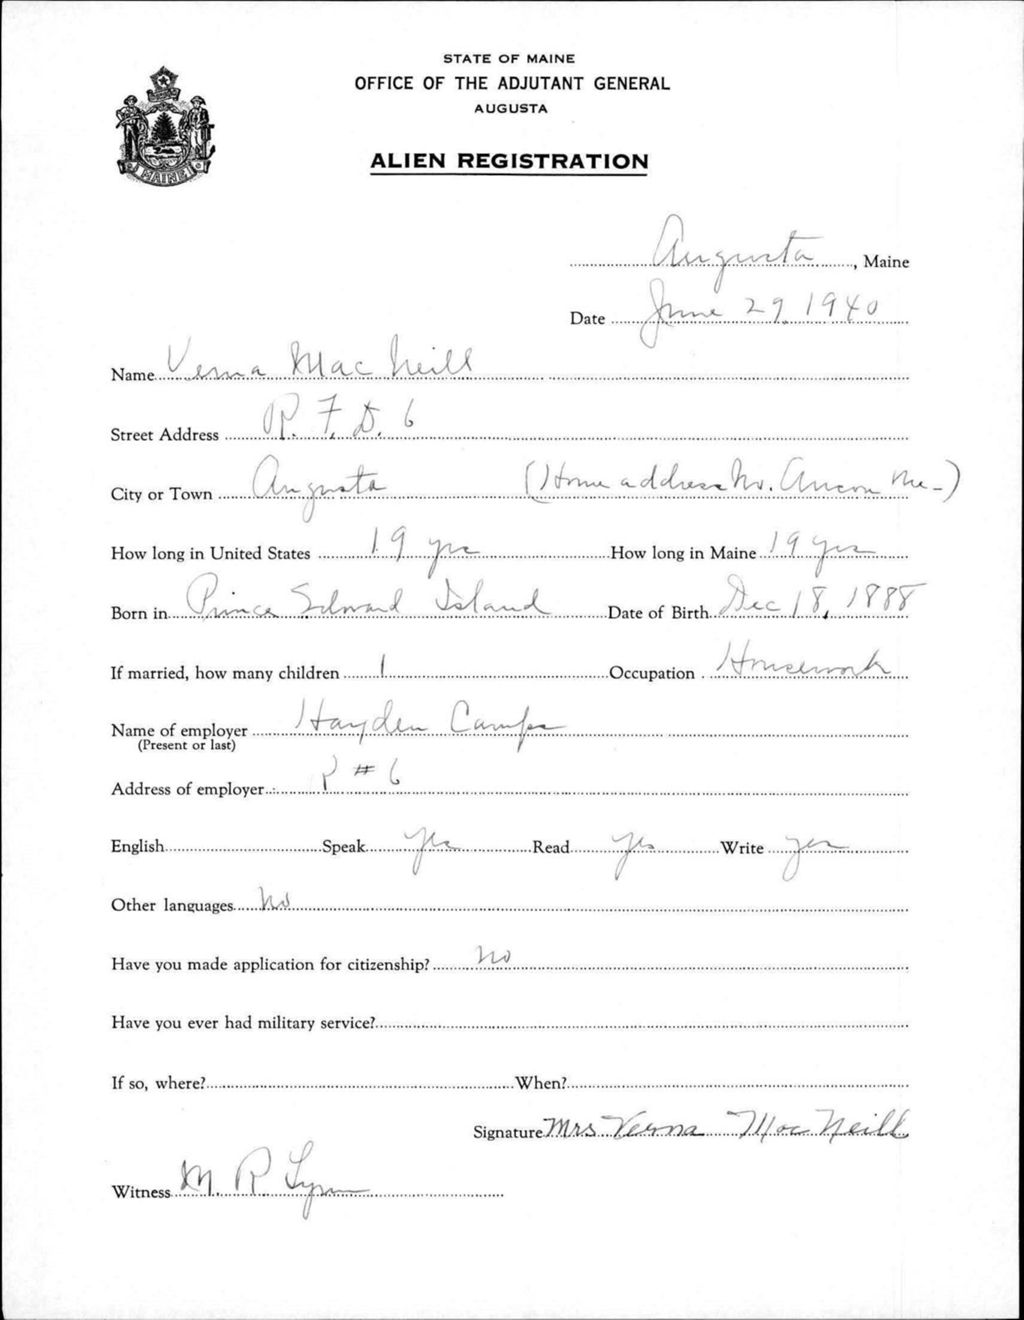 STATE OF MAINE
OFFICE OF THE ADJUTANT GENERAL
AUGUSTA
MAINE
ALIEN REGISTRATION
Augusta, Maine
Date June 29, 1940
Name Verna MacNeill
Street Address R. F. D. 6
City or Town Augusta (Home address No. Anson Me-)
How long in United States 19 yrs How long in Maine 19 yrs
Born in Prince Edward Island Date of Birth Dec 18, 1888
If married, how many children 1 Occupation Housework
Name of employer Hayden Camps
(Present or last)
Address of employer R # 6
English Speak yes Read yes Write yes
Other languages No
Have you made application for citizenship? No
Have you ever had military service?
If so, where? When?
Signature Mrs Verna MacNeill
Witness M R Lynn